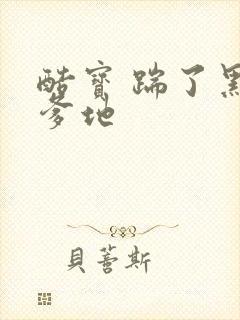 酷寶 踹了黑
爹地
貝蕾斯